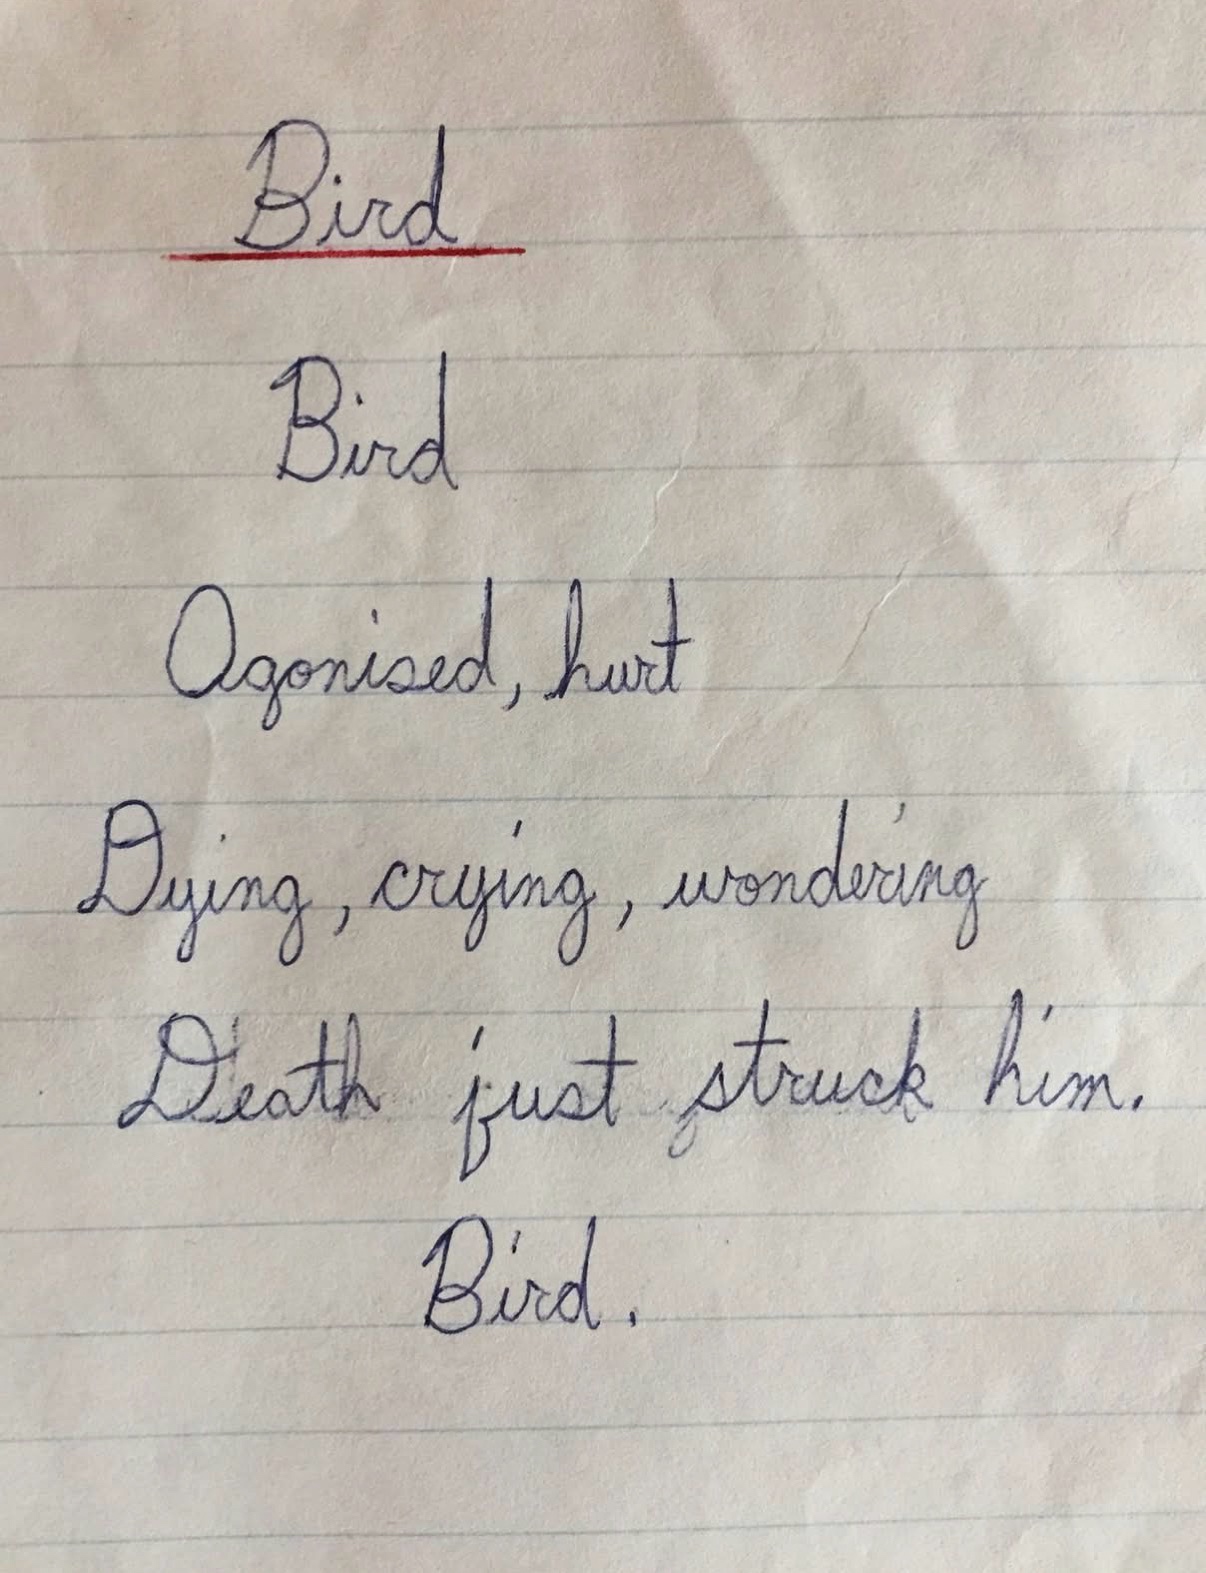 Bird
Bird
Agonised, hurt
Dying, crying, wondering
Death just struck him.
Bird.